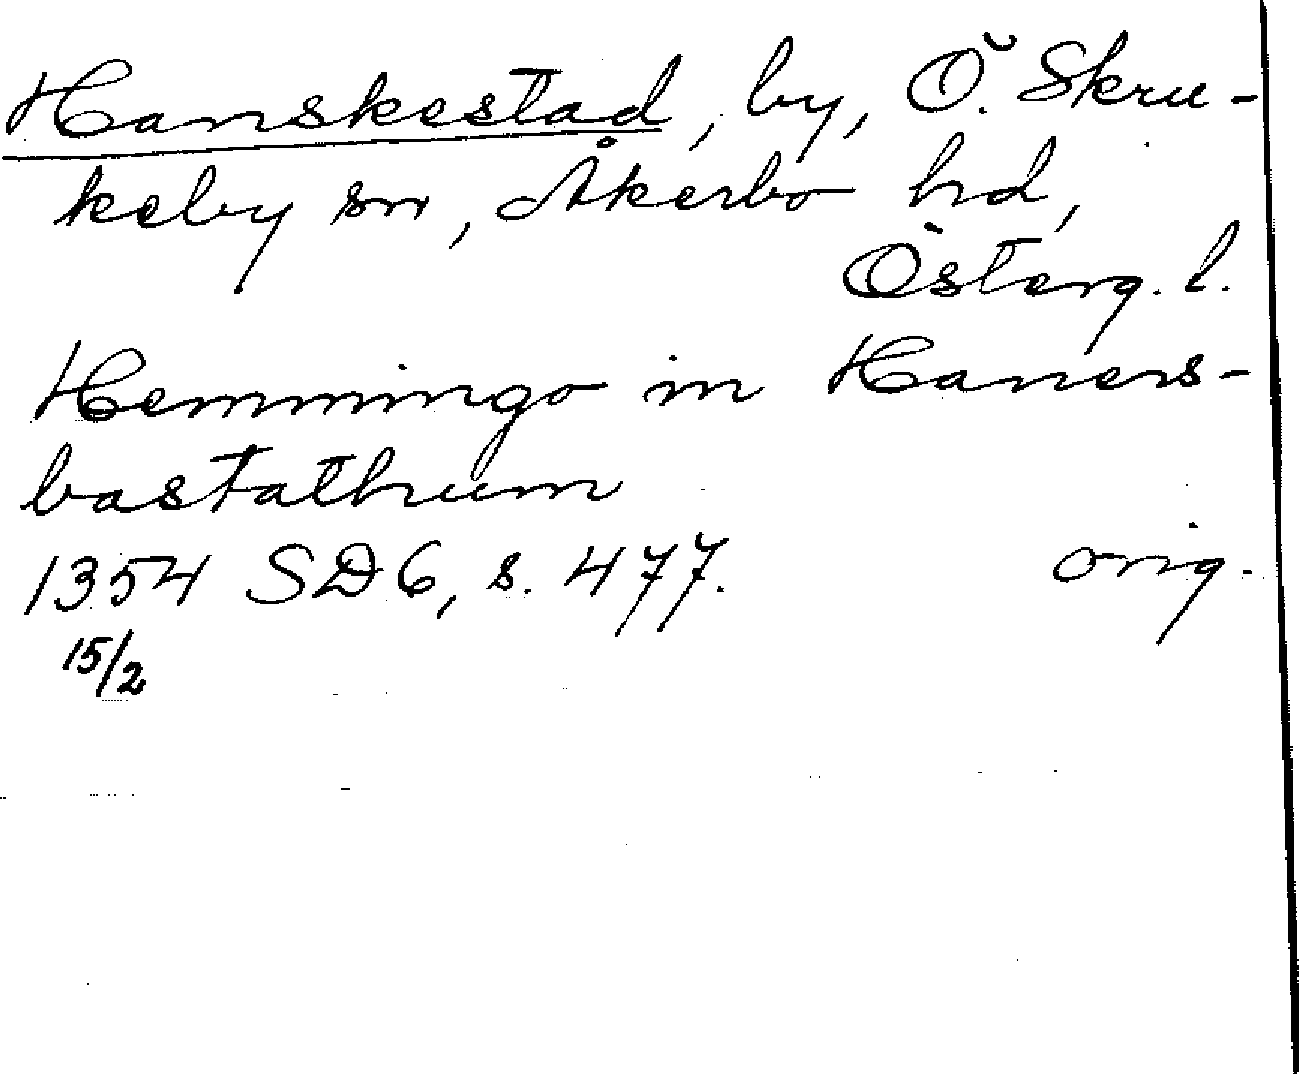 Hanskestad, by, Ö. Skru-
keby sn, Åkerbo hd,
Österg. l.
Hemmingo in Haners-
bastathum
1354 SD6, s. 477. orig.
15/2